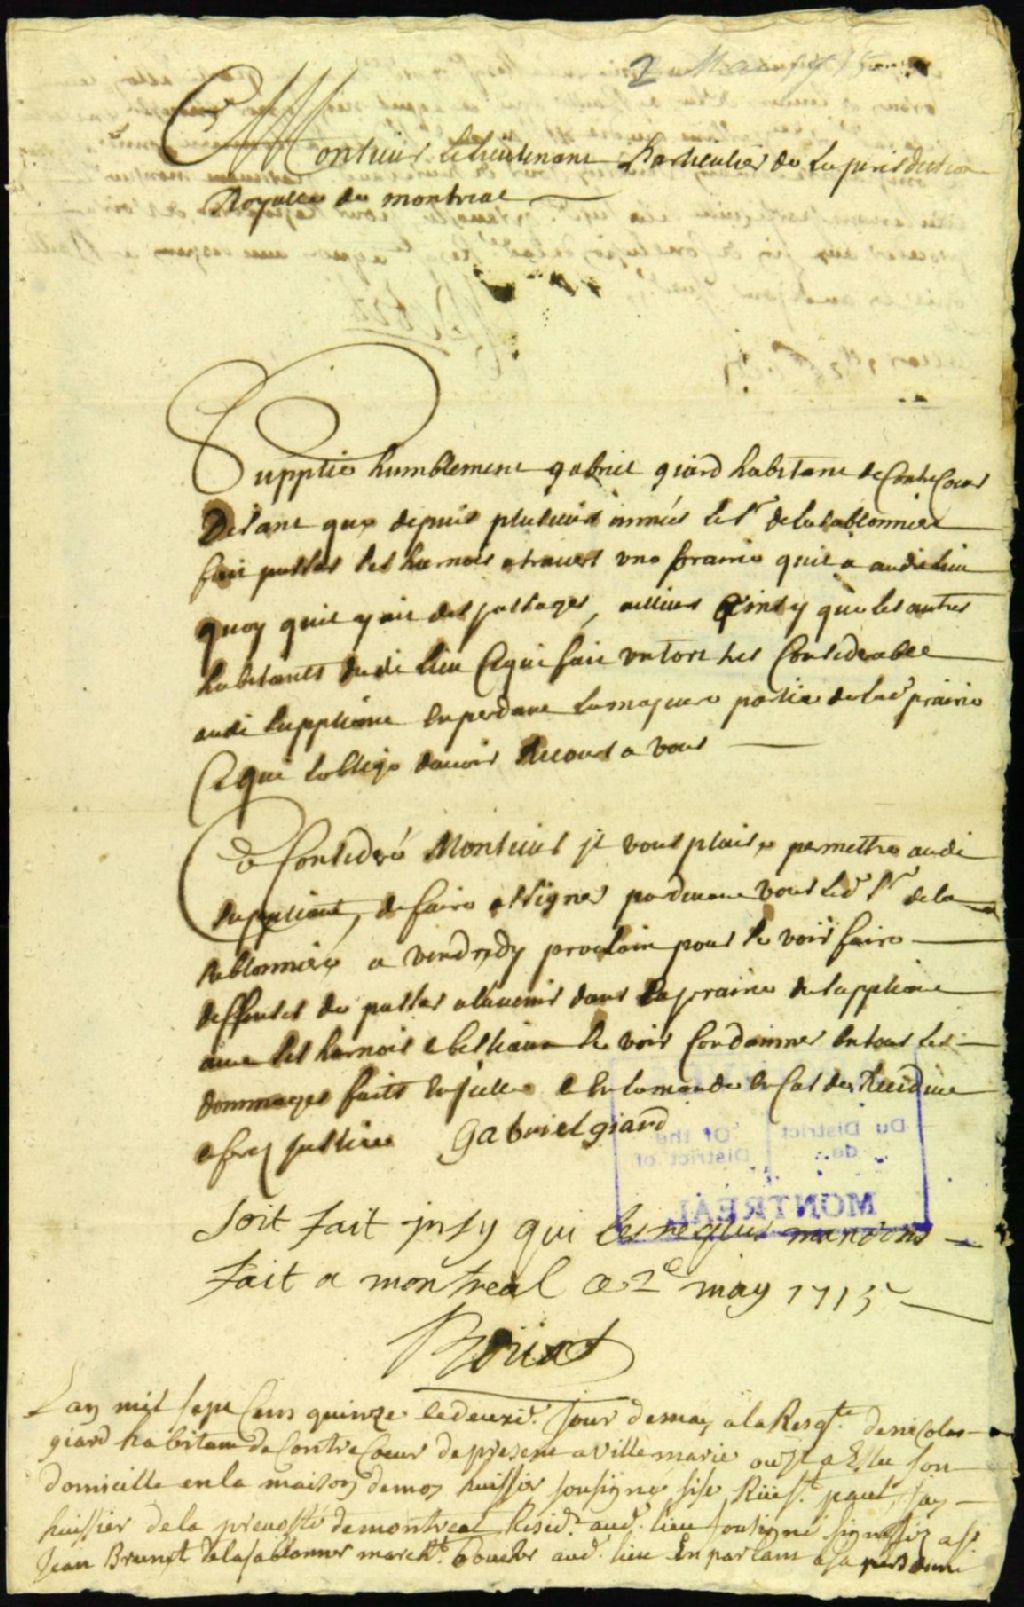 2 May 1715
Monsieur le lieutenant Particulier de la jurisdiction
Royalle de montreal
Supplie humblement gabriel giard habitant de Contrecoeur
Disant que depuis plusieurs années le Sr de la sablonniere
fait passer ses harnois a travers une prairie quil a audit lieu
quoy quil y ait des passages ailleurs ainsy que les autres
habitants dudit lieu Ce qui fait un tort tres Considerable
audit suppliant En perdant la majeure partie de lad prairie
Ce qui loblige davoir Recours a vous
Ce Consideré Monsieur jl vous plaise permettre audit
suppliant, de faire assigner pardevant vous led Sr de la
sablonniere a vendredy prochain pour se voir faire
deffenses de passer a lavenir dans la prairie du suppliant
avec ses harnois et bestiaux se voir Condamner en tous les
dommages faits en jcelle et en lamande En Cas de Recidive
et ferez justice Gabriel giard
Du District
de
Of the
District of
MONTREAL
Soit fait jnsy qui est requis mandons
Fait a montreal ce 2e may 1715
Boüat
Lan mil sept Cens quinze le deuxie. Jour de may a la Resqte. de nicolas
giard habitant de Contrecoeur de present a Villemarie ou Il a Eslu son
domicille en la maison de moy huissier sousigné sise Rüe St. paul, jay
huissier de la prevosté de montreal Resid. aud. lieu sousigné signiffié a Sr
Jean Brunet de la sablonner march. Boucher aud. lieu En parlant a sa personne